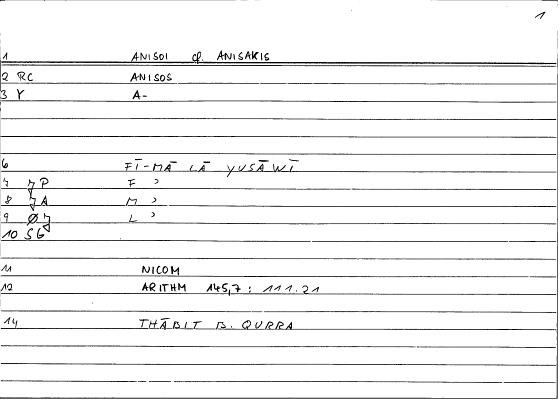 1
1 ANISOI cf. ANISAKIS
2 RC ANISOS
3 Y A-
6 FĪ-MĀ LĀ YUSĀWĪ
7 P F ʾ
8 A M ʾ
9 Ø L ʾ
10 SG
11 NICOM
12 ARITHM 145,7 : 111.21
14 THĀBIT B. QURRA